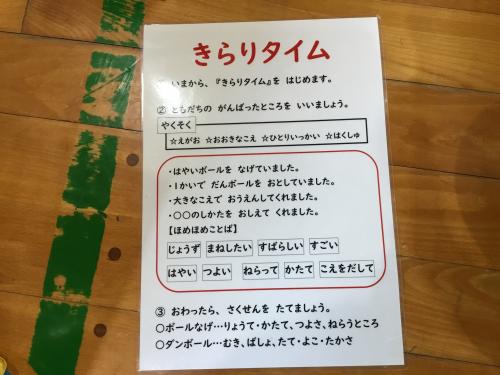 きらりタイム
いまから、『きらりタイム』を はじめます。
② ともだちの がんばったところを いいましょう。
やくそく
☆えがお ☆おおきなこえ ☆ひとりいっかい ☆はくしゅ
・はやいボールを なげていました。
・1かいで だんボールを おとしていました。
・大きなこえで おうえんしてくれました。
・〇〇のしかたを おしえて くれました。
【ほめほめことば】
じょうず まねしたい すばらしい すごい
はやい つよい ねらって かたて こえをだして
③ おわったら、さくせんを たてましょう。
〇ボールなげ…りょうて・かたて、つよさ、ねらうところ
〇ダンボール…むき、ばしょ、たて・よこ・たかさ